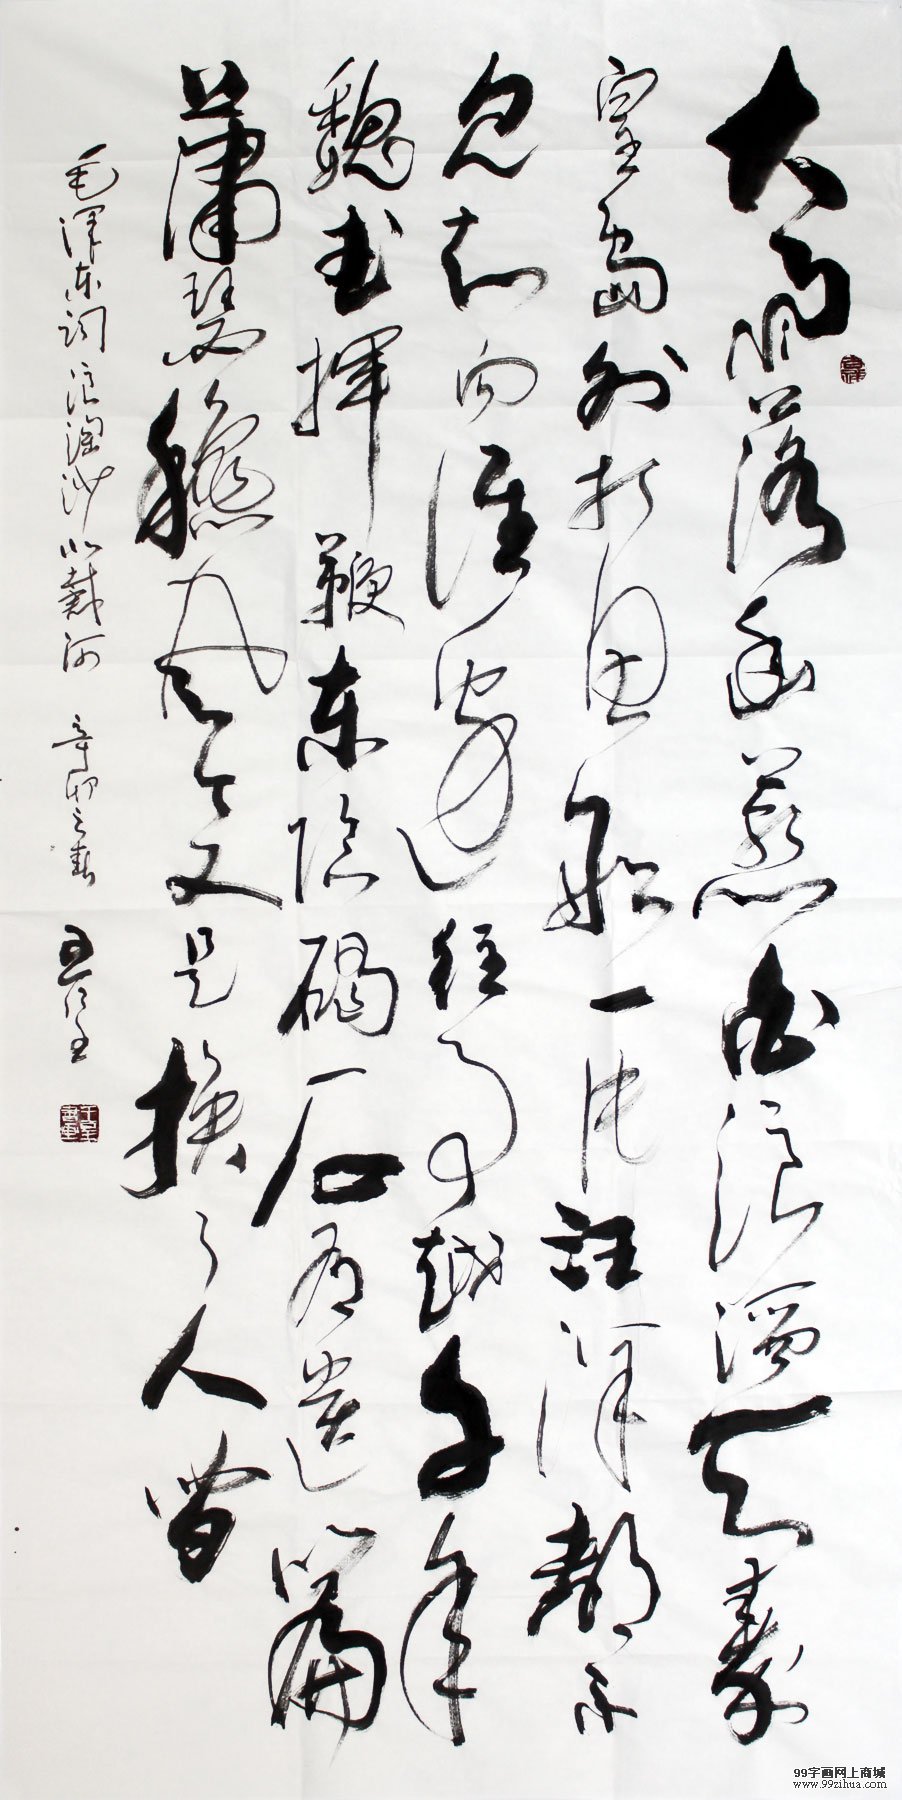 大雨落幽燕白浪滔天秦
皇島外打魚船一片汪洋都不
見知向誰邊往事越千年
魏武揮鞭東臨碣石有遺篇
蕭瑟秋風今又是換了人間
毛澤東詞浪淘沙北戴河 辛卯之春
99字画网上商城
www.99zihua.com